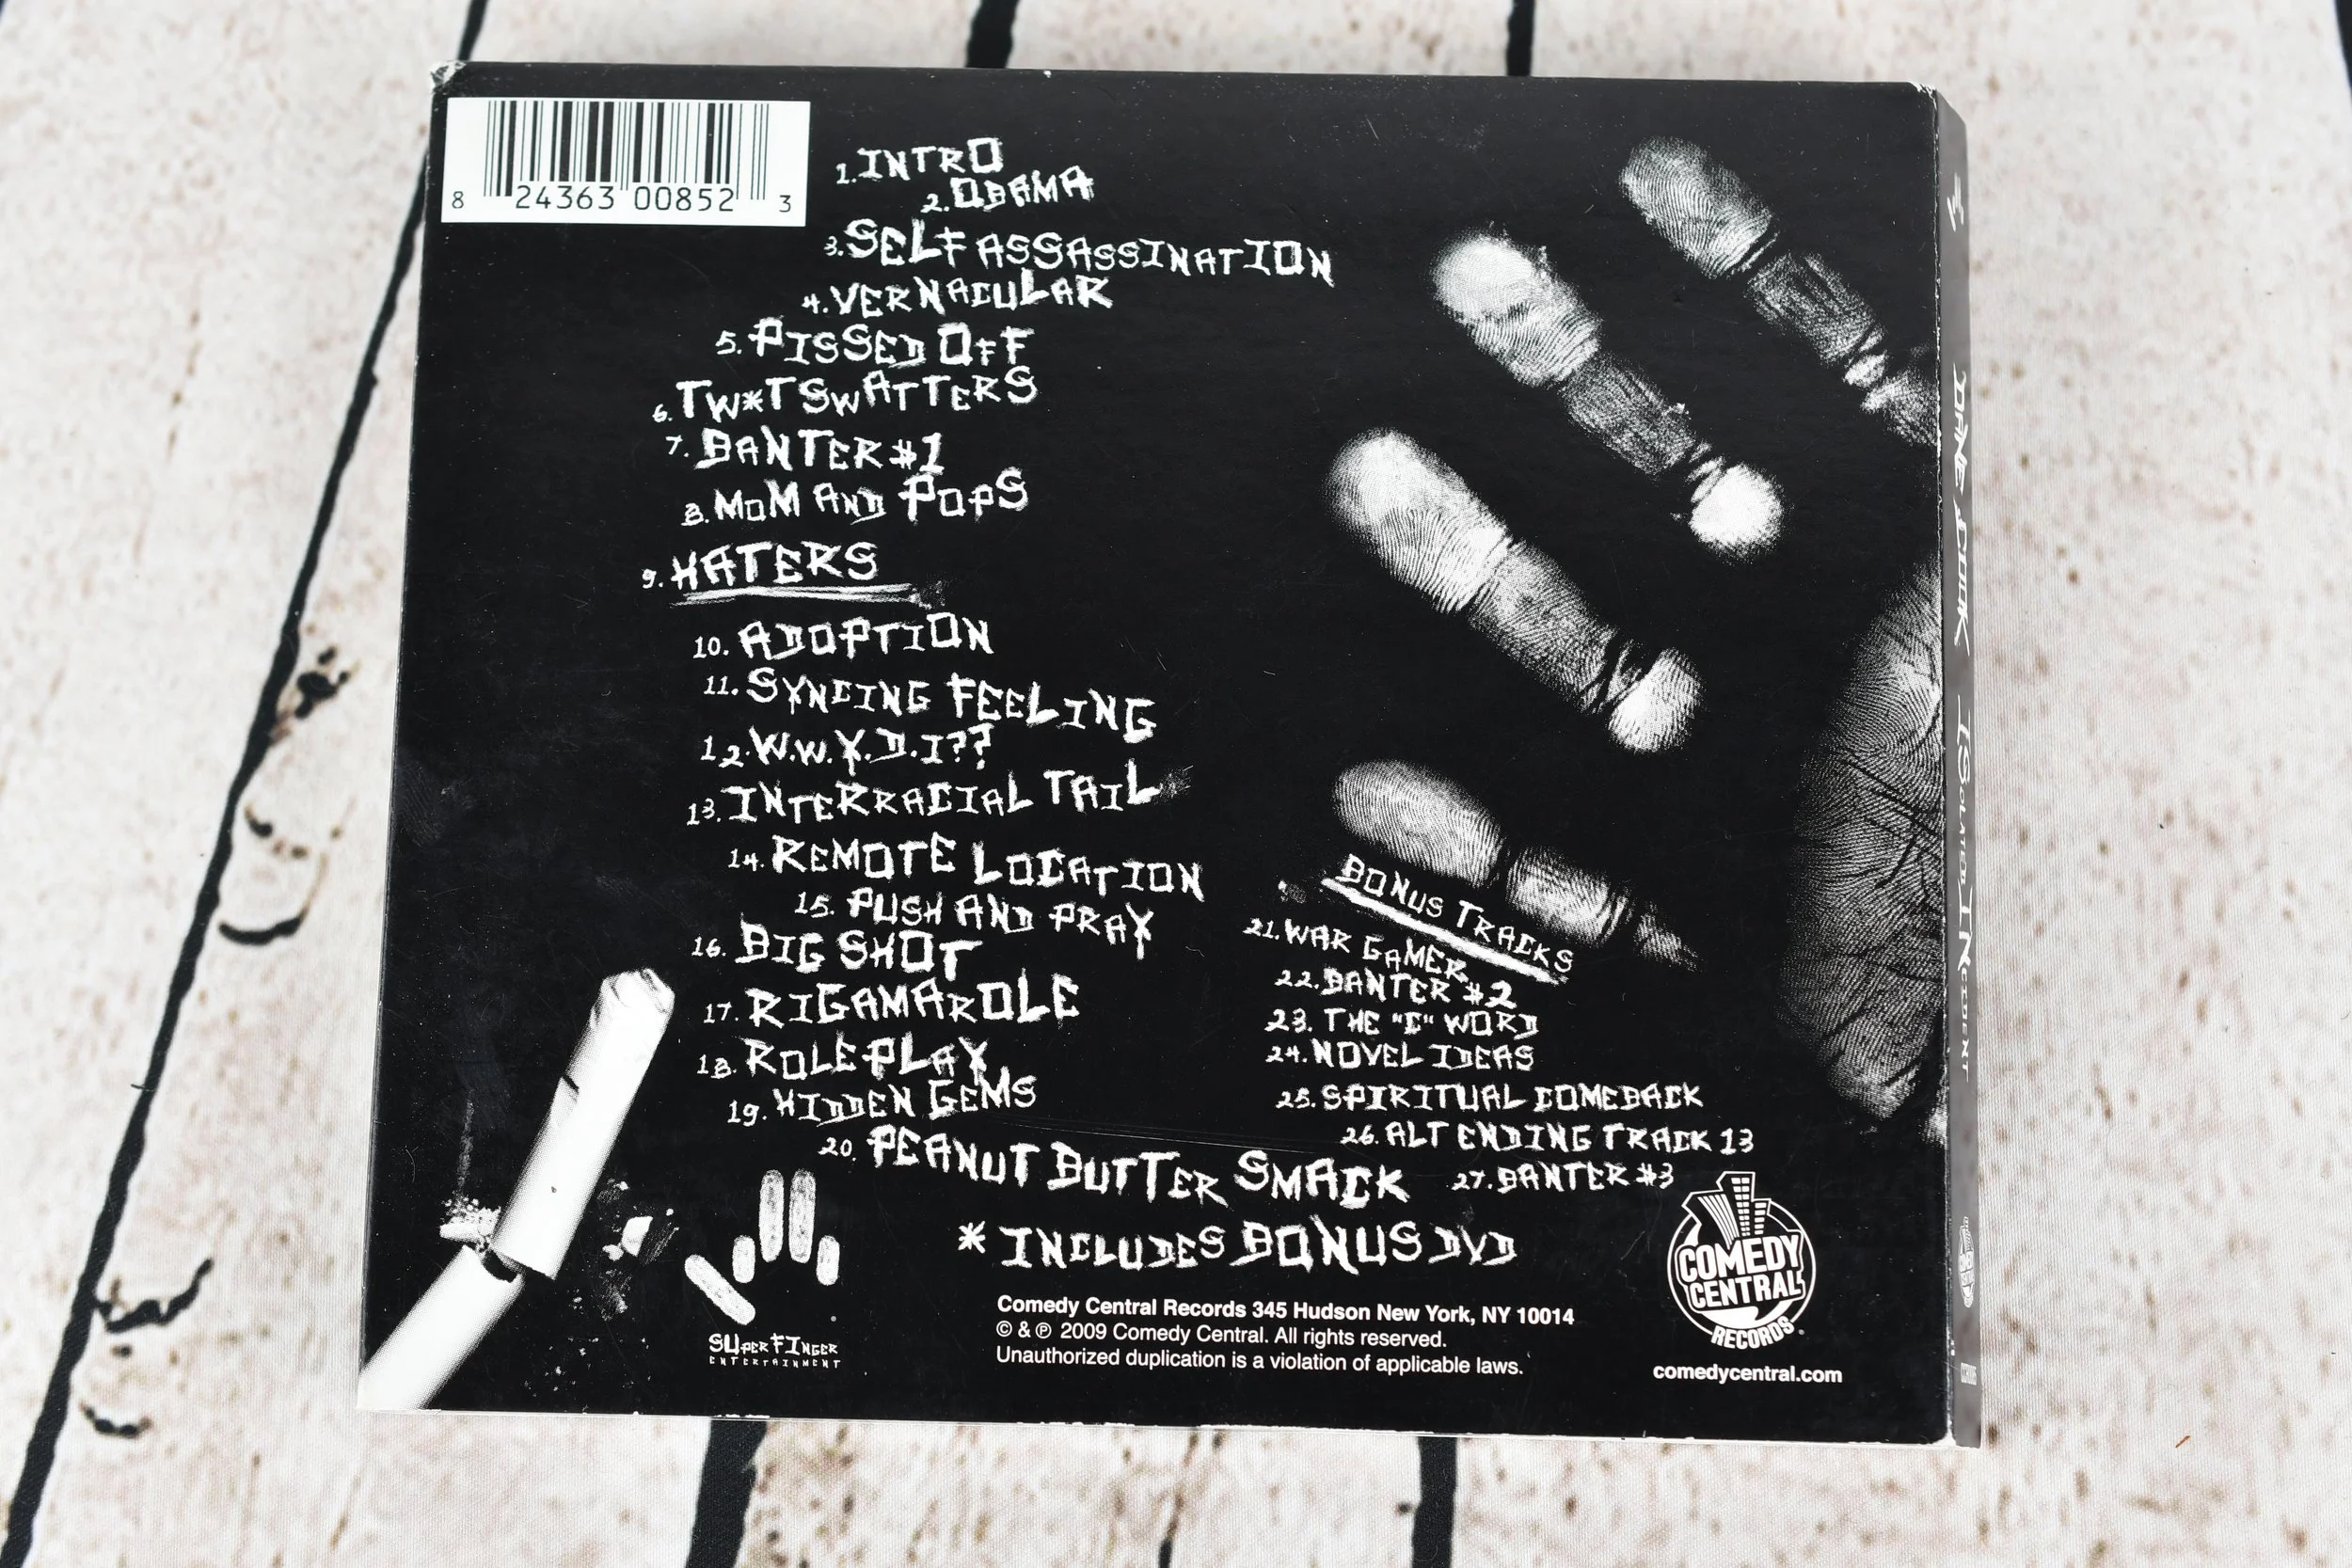 8 24363 00852 3
1. INTRO
2. OBAMA
3. SELF ASSASSINATION
4. VERNACULAR
5. PISSED OFF
6. TW*T SWATTERS
7. BANTER #1
8. MOM AND POPS
9. HATERS
10. ADOPTION
11. SYNCING FEELING
12. W.W.Y.D.I??
13. INTERRACIAL TAIL
14. REMOTE LOCATION
15. PUSH AND PRAY
16. BIG SHOT
17. RIGAMAROLE
18. ROLEPLAY
19. HIDDEN GEMS
20. PEANUT BUTTER SMACK
BONUS TRACKS
21. WAR GAMER
22. BANTER #2
23. THE "C" WORD
24. NOVEL IDEAS
25. SPIRITUAL COMEBACK
26. ALT ENDING TRACK 13
27. BANTER #3
* INCLUDES BONUS DVD
SUPERFINGER
ENTERTAINMENT
Comedy Central Records 345 Hudson New York, NY 10014
© & ℗ 2009 Comedy Central. All rights reserved.
Unauthorized duplication is a violation of applicable laws.
COMEDY
CENTRAL
RECORDS
comedycentral.com
DANE COOK ISOLATED INCIDENT